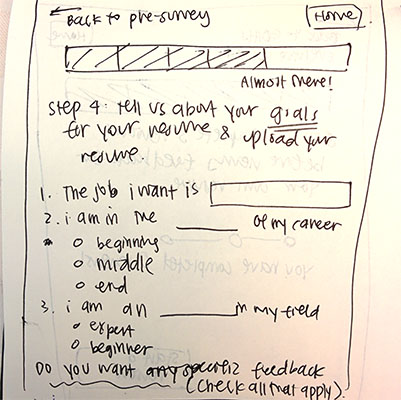 ← Back to pre-survey
Home
Almost there!
Step 4: Tell us about your goals
for your resume & upload your
resume.
1. The job i want is
2. i am in the ______ of my career
o beginning
o middle
o end
3. i am an ______ in my field
o expert
o beginner
Do you want any specific feedback
(check all that apply).